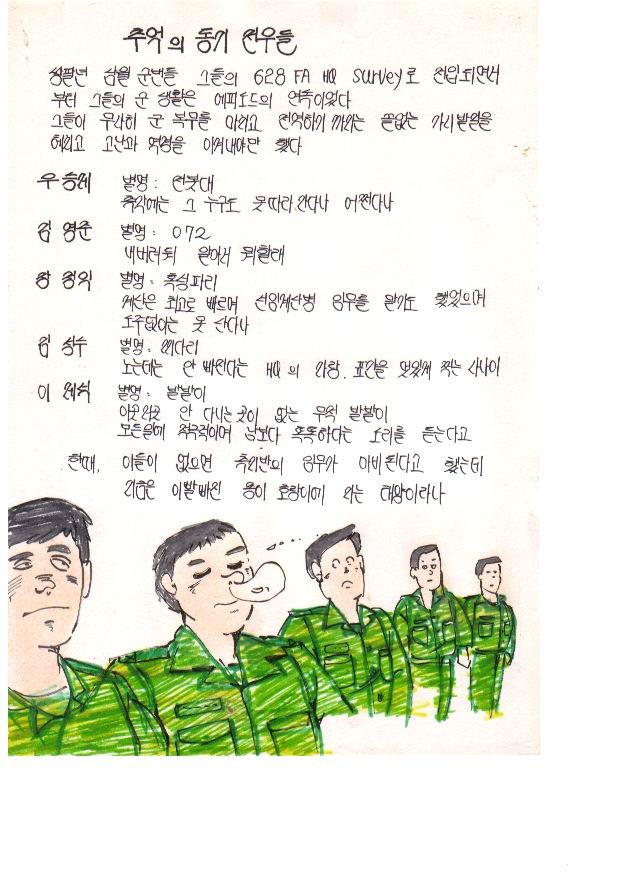 추억의 동기 전우들
쌍팔년 삼월 군번들 그들의 628 FA HQ survey로 전입되면서
부터 그들의 군 생활은 에피소드의 연속이었다
그들이 무사히 군 복무를 마치고 전역하기 까지는 끝없는 가시밭길을
헤치고 고난과 역경을 이겨내야만 했다
우승제 별명 : 전봇대
측각에는 그 누구도 못따라 간다나 어쩐다나
김 영준 별명 : 072
내버려둬 알아서 뭐할래
장 정익 별명 : 똥싼파리
계산은 최고로 빠르며 선임계산병 임무를 맡기도 했었으며
소주없이는 못 산다나
김 상수 별명 : 꺽다리
노는데는 안 빠진다는 HQ의 자랑. 표간을 멋있게 찍는 사나이
이 재석 별명 : 발발이
이곳저곳 안 다니는곳이 없는 무적 발발이
모든일에 적극적이며 남보다 똑똑하다는 소리를 듣는다고
한때, 이들이 없으면 측지반의 임무가 마비된다고 했는데
지금은 이빨빠진 용이 호랑이에 지는 태양이라나